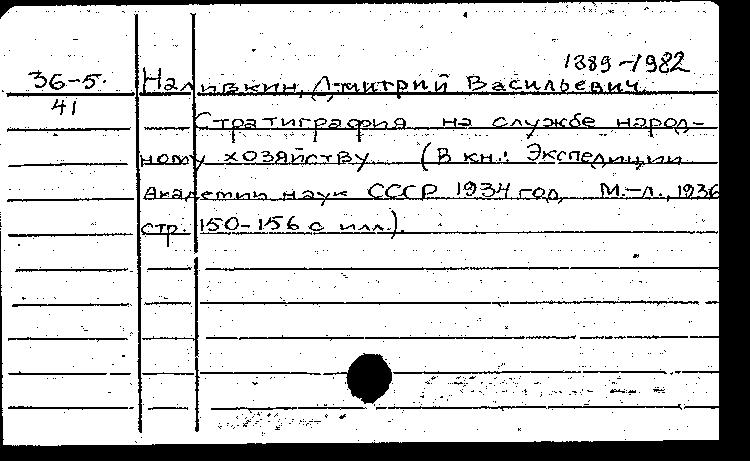 1889-1982
36-5. Наливкин, Дмитрий Васильевич.
41
Стратиграфия на службе народ-
ному хозяйству (В кн.: Экспедиции
Академии наук СССР 1934 год, М.-Л., 1936
стр. 150-156 с илл.).